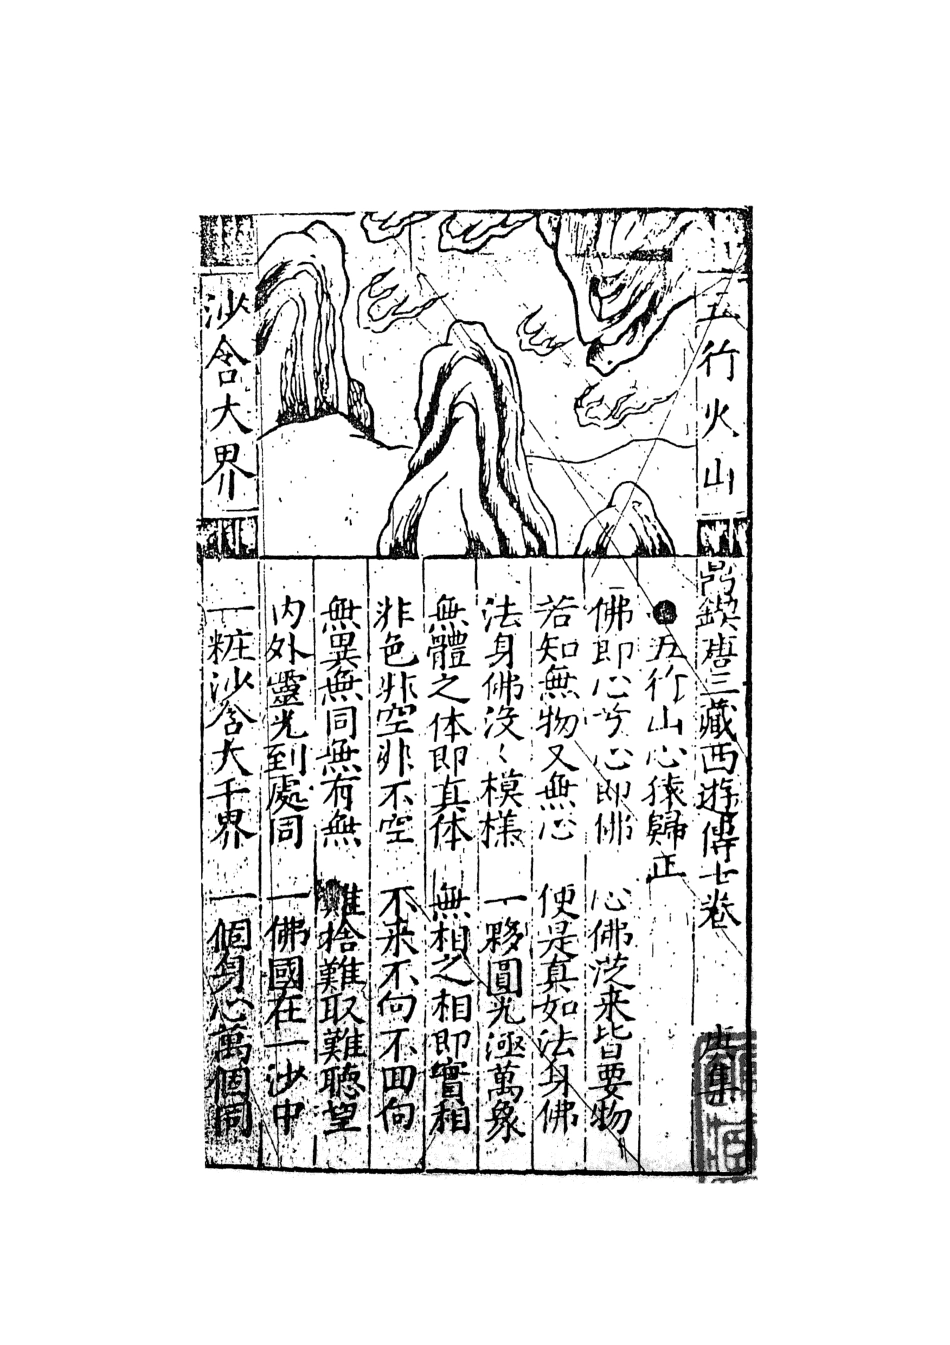 五行火山
沙含大界
鼎鍥唐三藏西遊傳七卷 庚集
五行山心猿歸正
佛即心兮心即佛 心佛從来皆要物
若知無物又無心 便是真如法身佛
法身佛没〻模樣 一夥圓光涵萬象
無體之体即真体 無相之相即實相
非色非空非不空 不来不向不回向
無異無同無有無 難捨難取難聽望
内外靈光到處同 一佛國在一沙中
一粒沙含大千界 一個身心萬個同